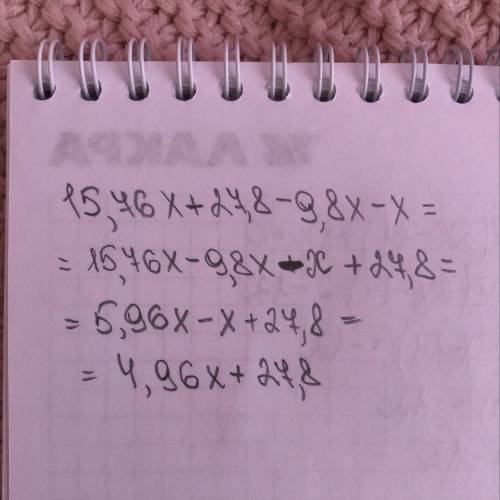 15,76x+27,8-9,8x-x=
=15,76x-9,8x-x+27,8=
=5,96x-x+27,8=
=4,96x+27,8